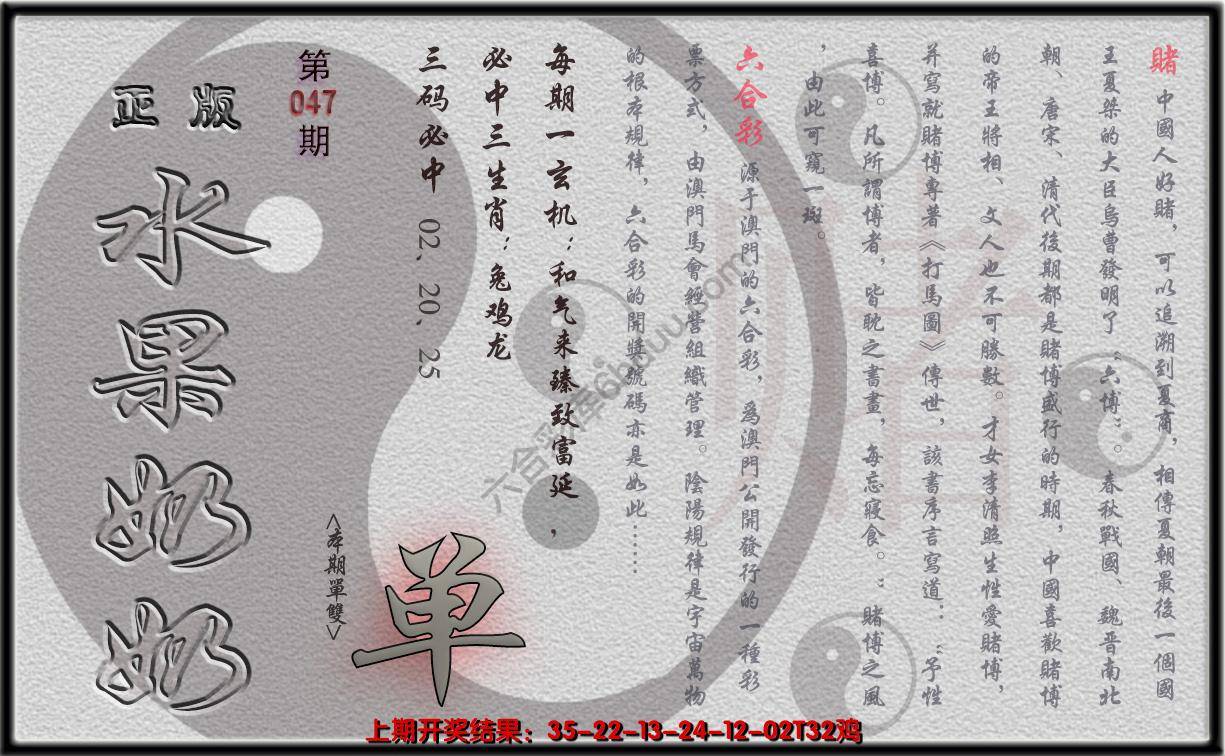 賭 中國人好賭，可以追溯到夏商，相傳夏朝最後一個國
王夏桀的大臣烏曹發明了“六博”。春秋戰國、魏晋南北
朝、唐宋、清代後期都是賭博盛行的時期，中國喜歡賭博
的帝王將相、文人也不可勝數。才女李清照生性愛賭博，
并寫就賭博專著《打馬圖》傳世，該書序言寫道：“予性
喜博。凡所謂博者，皆耽之晝晝，每忘寢食。”賭博之風
，由此可窺一斑。
六合彩 源于澳門的六合彩，爲澳門公開發行的一種彩
票方式，由澳門馬會經營組織管理。陰陽規律是宇宙萬物
的根本規律，六合彩的開獎號碼亦是如此……
每期一玄机：和气来臻致富延，
必中三生肖：兔鸡龙
三码必中 02、20、25
第
047
期
<本期單雙>
单
正版
水果奶奶
六合彩库6huuu.com
赌
上期开奖结果：35-22-13-24-12-02T32鸡